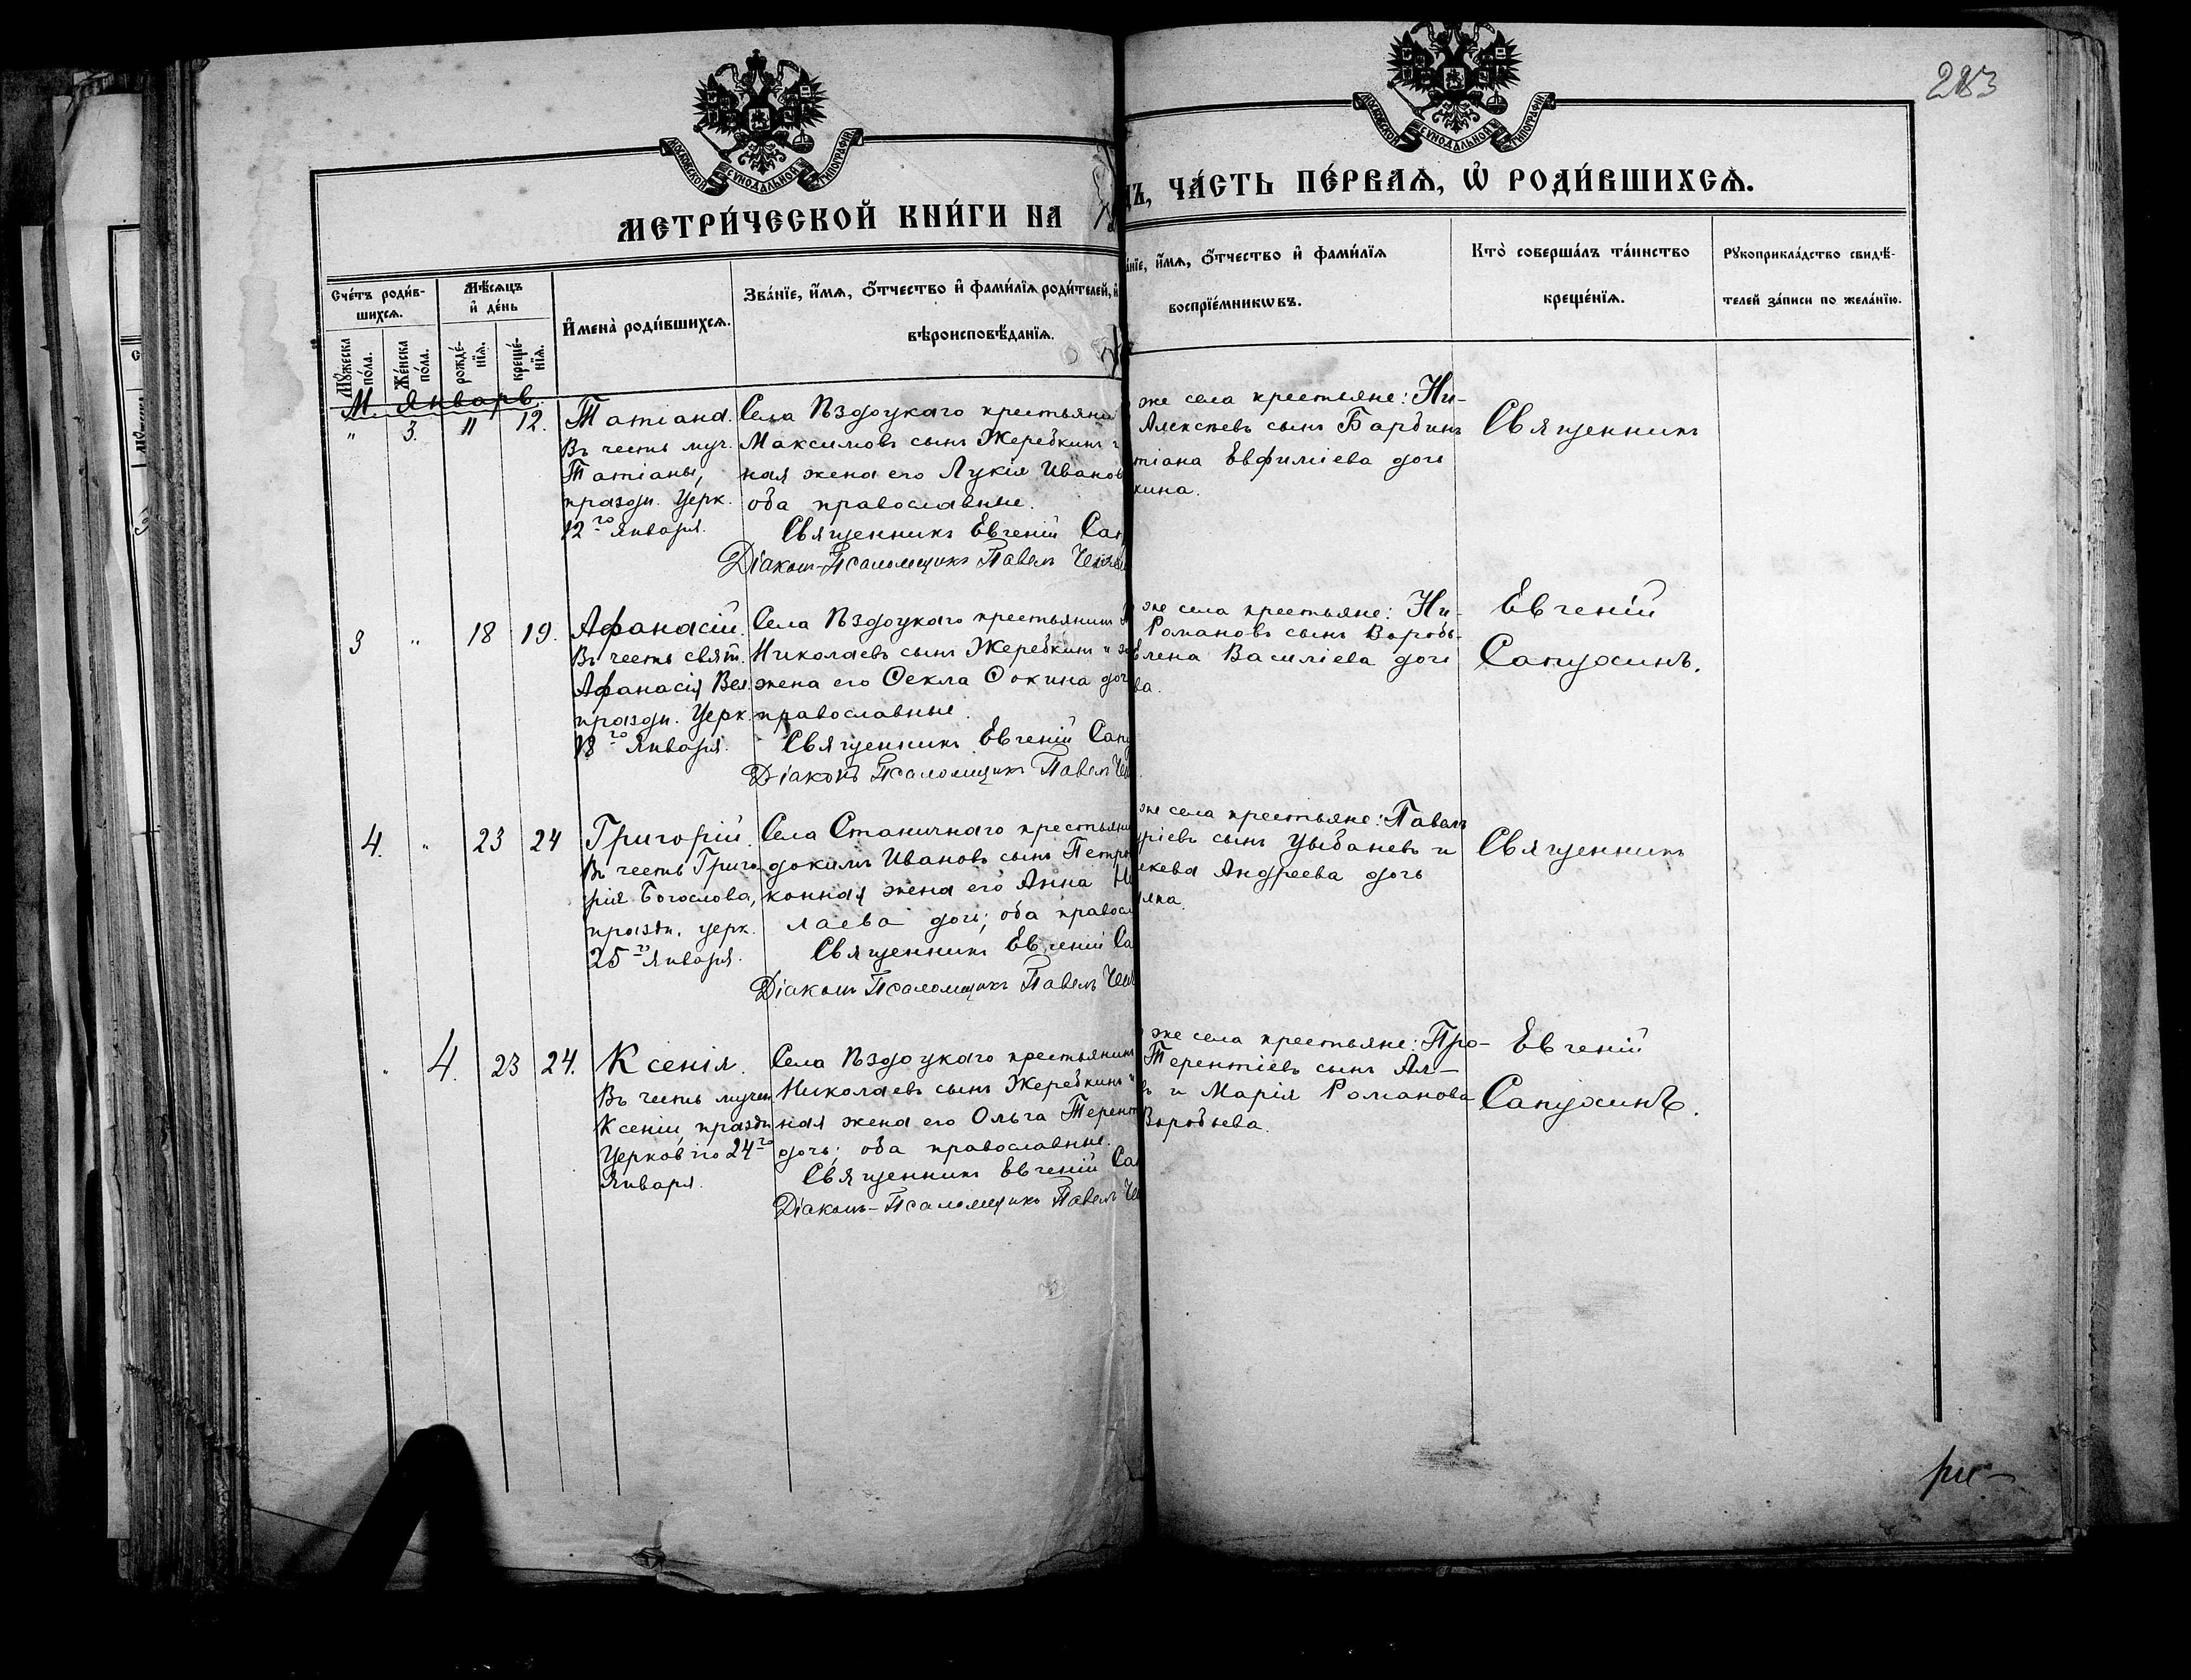 283
МОСКОВСКОЙ СѴНОДАЛЬНОЙ ТИПОГРАФІИ
МОСКОВСКОЙ СѴНОДАЛЬНОЙ ТИПОГРАФІИ
МЕТРИ́ЧЕСКОЙ КНИ́ГИ НА
ДЪ, ЧА́СТЬ ПЕ́РВАѦ, Ѡ҆ РОДИ́ВШИХСѦ.
Сче́тъ роди́в-
шихсѧ.
Мꙋ́жеска
по́ла.
Же́нска
по́ла.
Мѣ́сѧцъ
и҆ де́нь
рожде́-
нїѧ.
креще́-
нїѧ.
И҆мена̀ роди́вшихсѧ.
Зва́нїе, и҆́мѧ, ѻ҆́тчество и҆ фами́лїѧ роди́телей, и҆
вѣроисповѣ́данїѧ.
а́нїе, и҆́мѧ, ѻ҆́тчество и҆ фами́лїѧ
воспрїе́мникѡвъ.
Кто̀ соверша́лъ та́инство
креще́нїѧ.
Рꙋкоприкла́дство свидѣ́-
телей за́писи по жела́нїю.
М. Январь.
" 3. 11 12.
Татіана.
Въ честь муч.
Татіаны,
праздн. Церк.
12го Января.
Села Ѣздоцкаго крестьяни
Максимовъ сынъ Жеребкинъ и
ная жена его Лукія Иванов
оба православные.
Священникъ Евгеній Сап
Діаконъ-Псаломщикъ Павелъ
же села крестьяне: Ни-
Алексѣевъ сынъ Бардинъ
тіана Евфиміева дочь
кина.
Священникъ
3 " 18 19.
Афанасій.
Въ честь свят.
Афанасія Вел.
праздн. Церк.
18го Января.
Села Ѣздоцкаго крестьянинъ
Николаевъ сынъ Жеребкинъ и за
жена его Ѳекла Ѳокина доч
православные.
Священникъ Евгеній Сап
Діаконъ Псаломщикъ Павелъ
же села крестьяне: Ни-
Романовъ сынъ Воробь-
Елена Василіева дочь
ва.
Евгеній
Сапухинъ.
4. " 23 24
Григорій.
Въ честь Григо-
рія Богослова,
праздн. церк.
25го Января.
Села Станичнаго крестьяни
докимъ Ивановъ сынъ Петр
конная жена его Анна Ни
лаева дочь; оба правосл
Священникъ Евгеній Са
Діаконъ Псаломщикъ Павелъ
же села крестьяне: Павелъ
ріевъ сынъ Цыбаневъ и
Андреева дочь
Священникъ
" 4. 23 24.
Ксенія.
Въ честь мучен.
Ксеніи, праздн
Церковію 24го
Января.
Села Ѣздоцкаго крестьянинъ
Николаевъ сынъ Жеребкинъ и
ная жена его Ольга Терент
дочь; оба православные.
Священникъ Евгеній Сап
Діаконъ-Псаломщикъ Павелъ
же села крестьяне: Про-
Терентіевъ сынъ Ал-
ъ и Марія Романова
Воробьева.
Евгеній
Сапухинъ.